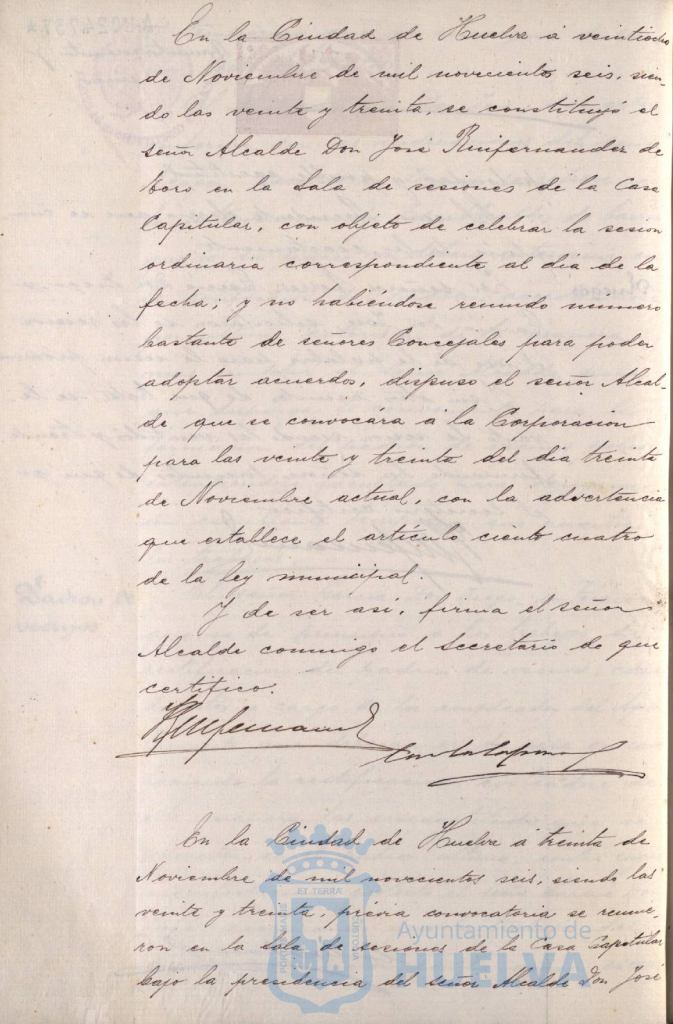 En la Ciudad de Huelva á veintiocho
de Noviembre de mil novecientos seis, sien-
do las veinte y treinta, se constituyó el
señor Alcalde Don José Ruifernandez de
toro en la Sala de sesiones de la Casa
Capitular, con objeto de celebrar la sesion
ordinaria correspondiente al dia de la
fecha; y no habiéndose reunido número
bastante de señores Concejales para poder
adoptar acuerdos, dispuso el señor Alcal-
de que se convocára á la Corporacion
para las veinte y treinta del dia treinta
de Noviembre actual, con la advertencia
que establece el artículo ciento cuatro
de la ley municipal.
Y de ser asi, firma el señor
Alcalde conmigo el Secretario de que
certifico.
En la Ciudad de Huelva á treinta de
Noviembre de mil novecientos seis, siendo las
veinte y treinta, prévia convocatoria se reunie-
ron en la Sala de sesiones de la Casa Capitular
bajo la presidencia del señor Alcalde Don José
Ayuntamiento de
HUELVA